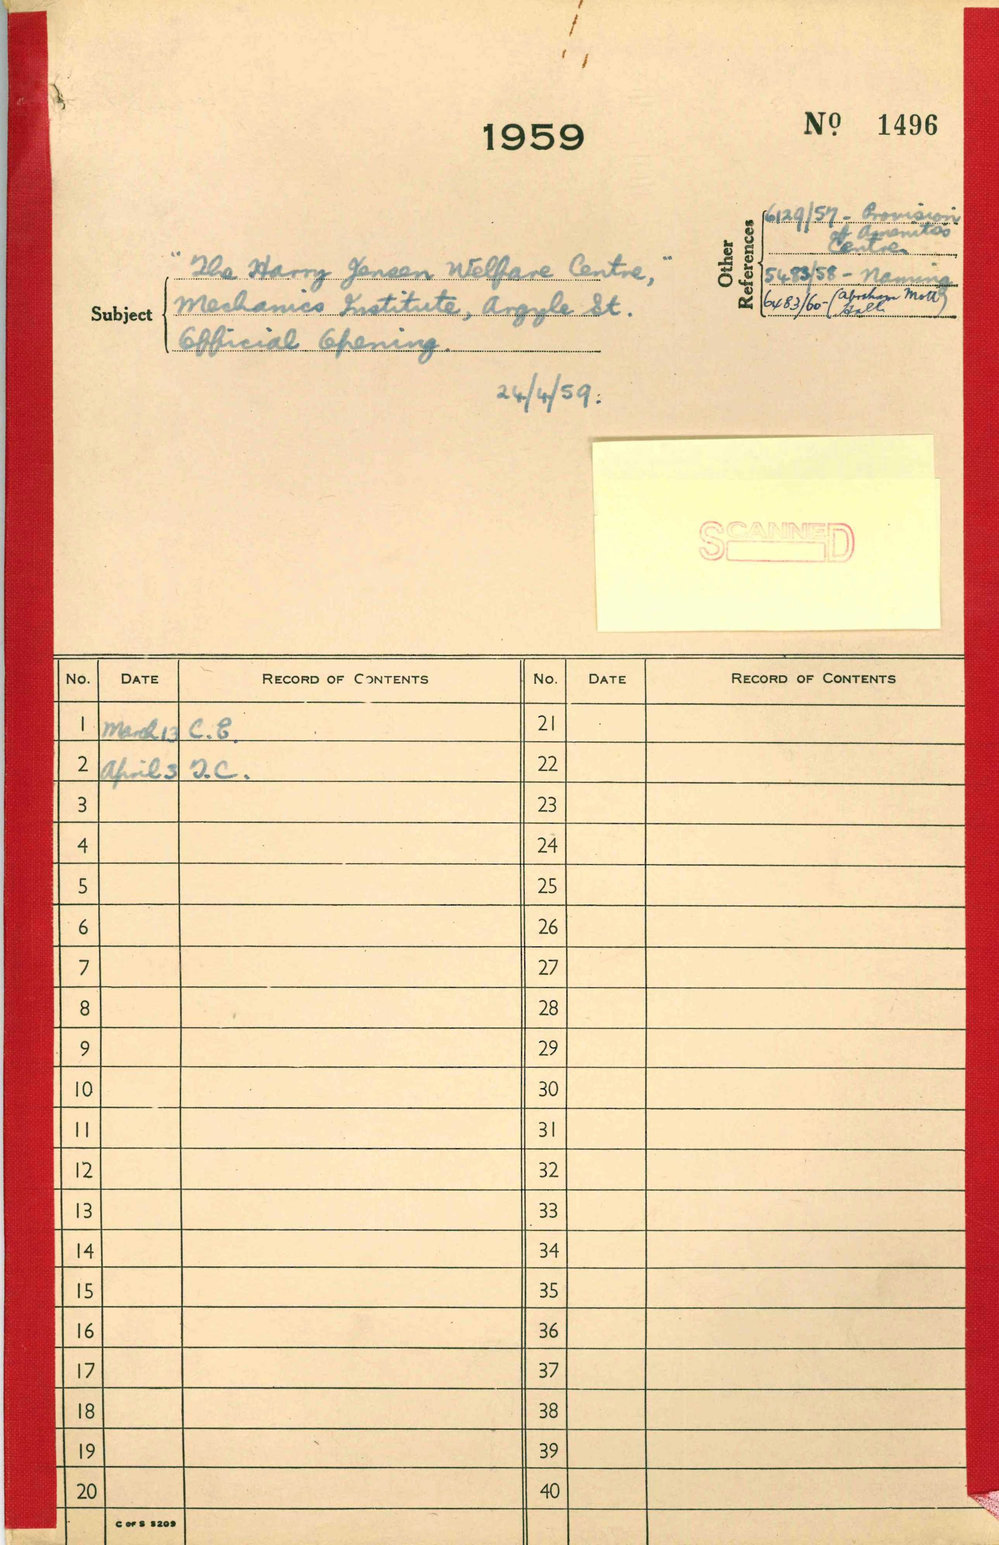 1959
Nº 1496
Other References
6129/57 - Provision
of Amenities
Centre
5483/58 - Naming
6483/60 - (Abraham Mott
Hall)
Subject
"The Harry Jensen Welfare Centre,"
Mechanics Institute, Argyle St.
Official Opening.
24/4/59.
SCANNED
No. DATE RECORD OF CONTENTS No. DATE RECORD OF CONTENTS
1 March 13 C.E. 21
2 April 3 T.C. 22
3 23
4 24
5 25
6 26
7 27
8 28
9 29
10 30
11 31
12 32
13 33
14 34
15 35
16 36
17 37
18 38
19 39
20 40
C OF S S209